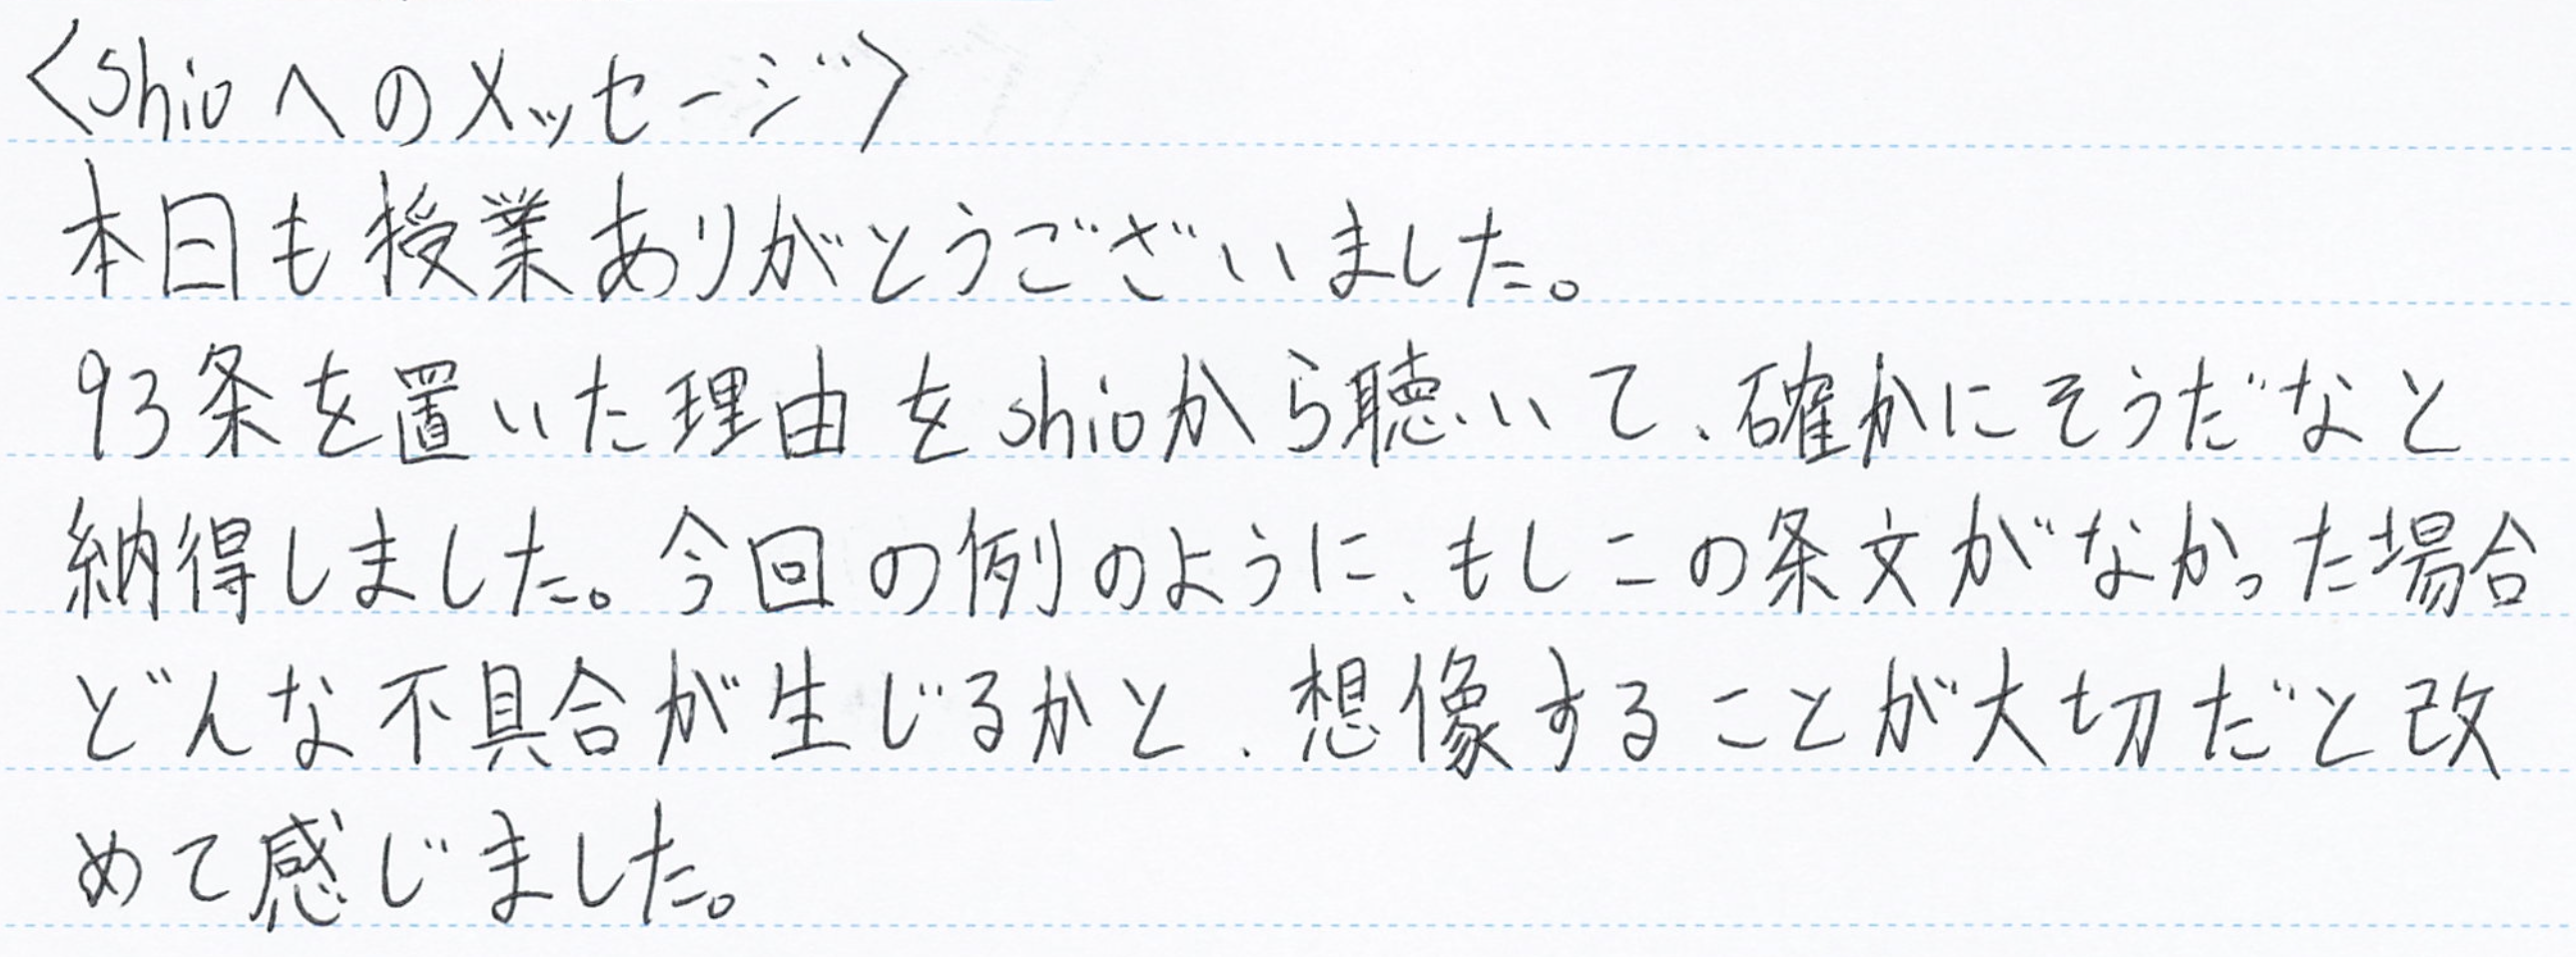 〈shioへのメッセージ〉
本日も授業ありがとうございました。
93条を置いた理由をshioから聴いて、確かにそうだなと
納得しました。今回の例のように、もしこの条文がなかった場合
どんな不具合が生じるかと、想像することが大切だと改
めて感じました。